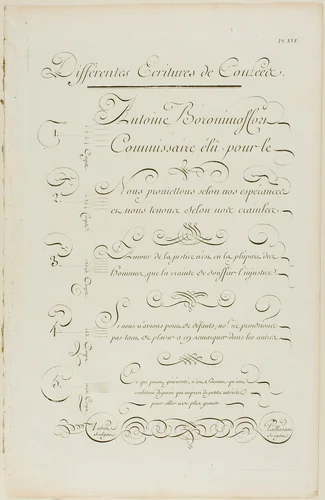 Pl. XVI.
Différentes Ecritures de Coulée.
1. Antoine
Commissaire élû pour le
2. Nous promettons selon nos esperances
et nous tenons selon nos craintes.
3. L'amour de la justice n'est en la plupart des
Hommes, que la crainte de souffrir l'injustice.
4. Si nous n'avions point de défauts, nous ne prendrions
pas tant de plaisir à en remarquer dans les autres
5. Ce qui paroit générosité, n'est
ambition déguisée qui méprise de petits intérêts
pour aller à de plus grands